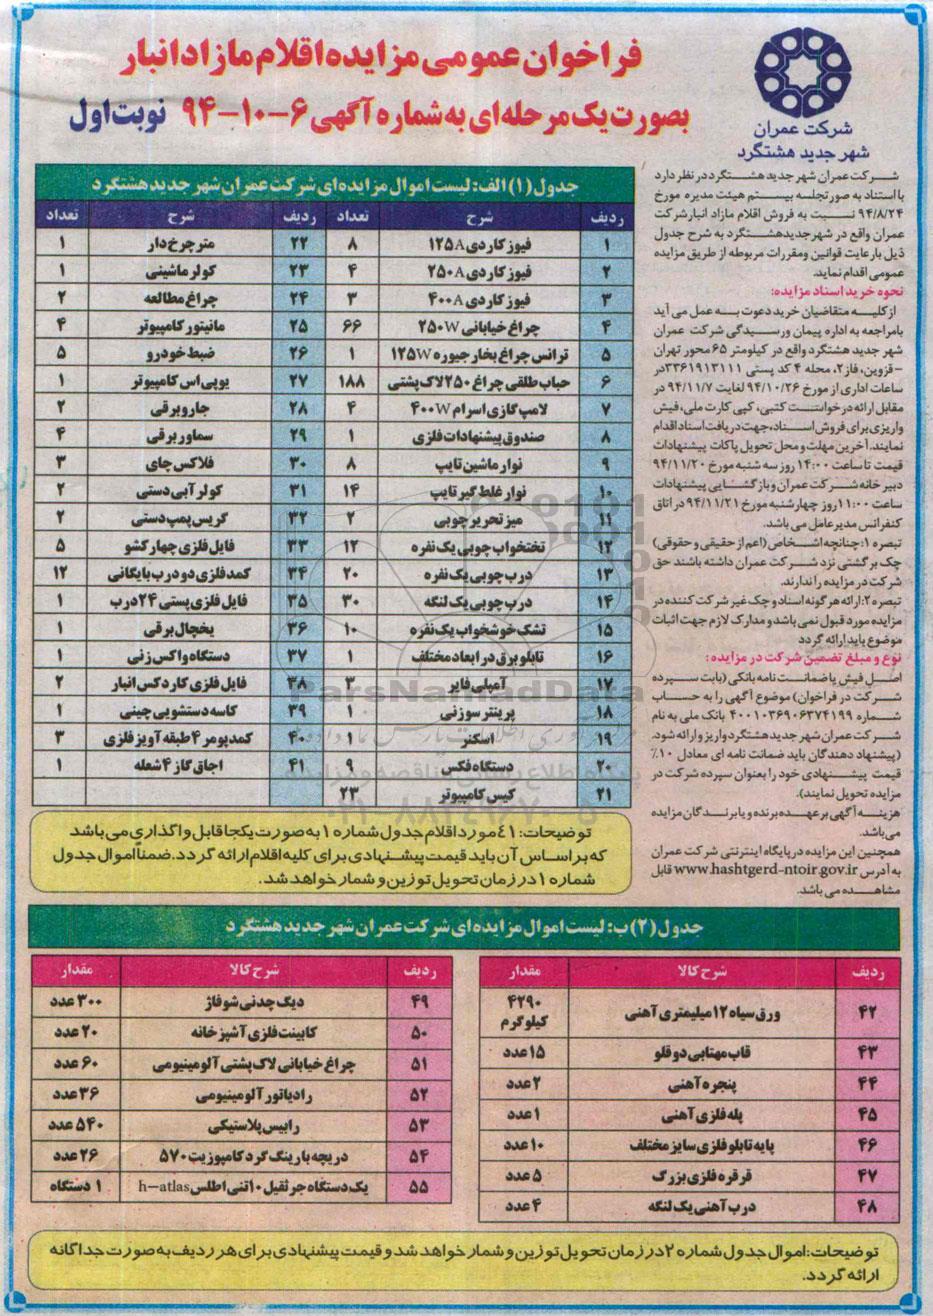 فراخوان عمومی مزایده اقلام مازاد انبار
بصورت یک مرحله ای به شماره آگهی ۶-۱۰-۹۴ نوبت اول
شرکت عمران
شهر جدید هشتگرد
شرکت عمران شهر جدید هشتگرد در نظر دارد
با استناد به صورتجلسه بیستم هیئت مدیره مورخ
۹۴/۸/۲۴ نسبت به فروش اقلام مازاد انبار شرکت
عمران واقع در شهر جدید هشتگرد به شرح جدول
ذیل با رعایت قوانین و مقررات مربوطه از طریق مزایده
عمومی اقدام نماید.
نحوه خرید اسناد مزایده:
از کلیه متقاضیان خرید دعوت به عمل می آید
با مراجعه به اداره پیمان و رسیدگی شرکت عمران
شهر جدید هشتگرد واقع در کیلومتر ۶۵ محور تهران
- قزوین، فاز ۲، محله ۴ کد پستی ۳۳۶۱۹۱۳۱۱۱ در
ساعات اداری از مورخ ۹۴/۱۰/۲۶ لغایت ۹۴/۱۱/۷ در
مقابل ارائه درخواست کتبی، کپی کارت ملی، فیش
واریزی برای فروش اسناد، جهت دریافت اسناد اقدام
نمایند. آخرین مهلت و محل تحویل پاکات پیشنهادات
قیمت تا ساعت ۱۴:۰۰ روز سه شنبه مورخ ۹۴/۱۱/۲۰
دبیر خانه شرکت عمران و بازگشایی پیشنهادات
ساعت ۱۱:۰۰ روز چهارشنبه مورخ ۹۴/۱۱/۲۱ در اتاق
کنفرانس مدیرعامل می باشد.
تبصره ۱: چنانچه اشخاص (اعم از حقیقی و حقوقی)
چک برگشتی نزد شرکت عمران داشته باشند حق
شرکت در مزایده را ندارند.
تبصره ۲: ارائه هر گونه اسناد و چک غیر شرکت کننده در
مزایده مورد قبول نمی باشد و مدارک لازم جهت اثبات
موضوع باید ارائه گردد
نوع و مبلغ تضمین شرکت در مزایده:
اصل فیش یا ضمانت نامه بانکی (بابت سپرده
شرکت در فراخوان) موضوع آگهی را به حساب
شماره ۴۰۰۱۰۳۶۹۰۶۳۷۴۱۹۹ بانک ملی به نام
شرکت عمران شهر جدید هشتگرد واریز و ارائه شود.
(پیشنهاد دهندگان باید ضمانت نامه ای معادل ۱۰٪
قیمت پیشنهادی خود را بعنوان سپرده شرکت در
مزایده تحویل نمایند).
هزینه آگهی بر عهده برنده و یا برندگان مزایده
می باشد.
همچنین این مزایده در پایگاه اینترنتی شرکت عمران
به آدرس www.hashtgerd-ntoir.gov.ir قابل
مشاهده می باشد.
جدول (۱) الف: لیست اموال مزایده ای شرکت عمران شهر جدید هشتگرد
ردیف شرح تعداد ردیف شرح تعداد
۱ فیوز کاردی ۱۲۵A ۸ ۲۲ متر چرخ دار ۱
۲ فیوز کاردی ۲۵۰A ۴ ۲۳ کولر ماشینی ۱
۳ فیوز کاردی ۴۰۰A ۳ ۲۴ چراغ مطالعه ۲
۴ چراغ خیابانی ۲۵۰W ۶۶ ۲۵ مانیتور کامپیوتر ۴
۵ ترانس چراغ بخار جیوره ۱۲۵W ۱ ۲۶ ضبط خودرو ۵
۶ حباب طلقی چراغ ۲۵۰ لاک پشتی ۱۸۸ ۲۷ یو پی اس کامپیوتر ۱
۷ لامپ گازی اسرام ۴۰۰W ۴ ۲۸ جارو برقی ۲
۸ صندوق پیشنهادات فلزی ۱ ۲۹ سماور برقی ۴
۹ نوار ماشین تایپ ۸ ۳۰ فلاکس چای ۳
۱۰ نوار غلط گیر تایپ ۱۴ ۳۱ کولر آبی دستی ۲
۱۱ میز تحریر چوبی ۲ ۳۲ گریس پمپ دستی ۲
۱۲ تختخواب چوبی یک نفره ۱۲ ۳۳ فایل فلزی چهار کشو ۵
۱۳ درب چوبی یک نفره ۲۰ ۳۴ کمد فلزی دو درب بایگانی ۱۲
۱۴ درب چوبی یک لنگه ۳۰ ۳۵ فایل فلزی پستی ۲۴ درب ۱
۱۵ تشک خوشخواب یک نفره ۱۰ ۳۶ یخچال برقی ۱
۱۶ تابلو برق در ابعاد مختلف ۱ ۳۷ دستگاه واکس زنی ۱
۱۷ آمپلی فایر ۳ ۳۸ فایل فلزی کاردکس انبار ۲
۱۸ پرینتر سوزنی ۱ ۳۹ کاسه دستشویی چینی ۱
۱۹ اسکنر ۱ ۴۰ کمد پومر ۴ طبقه آویز فلزی ۳
۲۰ دستگاه فکس ۹ ۴۱ اجاق گاز ۴ شعله ۱
۲۱ کیس کامپیوتر ۲۳
توضیحات: ٤١ مورد اقلام جدول شماره ۱ به صورت یکجا قابل واگذاری می باشد
که بر اساس آن باید قیمت پیشنهادی برای کلیه اقلام ارائه گردد. ضمناً اموال جدول
شماره ۱ در زمان تحویل توزین و شمار خواهد شد.
ParsNamadData
۰۲۱-۸۸۳۴۹۶۷۰-۵
جدول (۲) ب: لیست اموال مزایده ای شرکت عمران شهر جدید هشتگرد
ردیف شرح کالا مقدار
۴۲ ورق سیاه ۱۲ میلیمتری آهنی ۴۲۹۰ کیلوگرم
۴۳ قاب مهتابی دو قلو ۱۵ عدد
۴۴ پنجره آهنی ۲ عدد
۴۵ پله فلزی آهنی ۱ عدد
۴۶ پایه تابلو فلزی سایز مختلف ۱۰ عدد
۴۷ قرقره فلزی بزرگ ۵ عدد
۴۸ درب آهنی یک لنگه ۴ عدد
ردیف شرح کالا مقدار
۴۹ دیگ چدنی شوفاژ ۳۰۰ عدد
۵۰ کابینت فلزی آشپزخانه ۲۰ عدد
۵۱ چراغ خیابانی لاک پشتی آلومینیومی ۶۰ عدد
۵۲ رادیاتور آلومینیومی ۳۶ عدد
۵۳ رابیس پلاستیکی ۵۴۰ عدد
۵۴ دریچه بارینگ گرد کامپوزیت ۵۷۰ ۲۶ عدد
۵۵ یک دستگاه جرثقیل ۱۰ تنی اطلس h-atlas ۱ دستگاه
توضیحات: اموال جدول شماره ۲ در زمان تحویل توزین و شمار خواهد شد و قیمت پیشنهادی برای هر ردیف به صورت جداگانه
ارائه گردد.